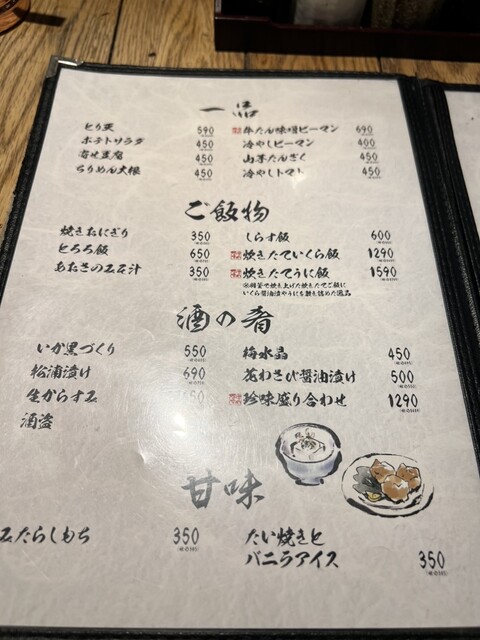 一品
とり天 590
ポテトサラダ 450
寄せ豆腐 450
ちりめん大根 450
牛たん味噌ピーマン 690
冷やしピーマン 400
山芋たんざく 450
冷やしトマト 450
ご飯物
焼きおにぎり 350
とろろ飯 650
あおさのみそ汁 350
しらす飯 600
炊きたていくら飯 1290
炊きたてうに飯 1590
※羽釜で炊き上げた炊きたてご飯に
いくら醤油漬やうにを敷き詰めた逸品
酒の肴
いか黒づくり 550
松浦漬け 690
生からすみ
酒盗
梅水晶 450
花わさび醤油漬け 500
珍味盛り合わせ 1290
甘味
みたらしもち 350
たい焼きと
バニラアイス 350